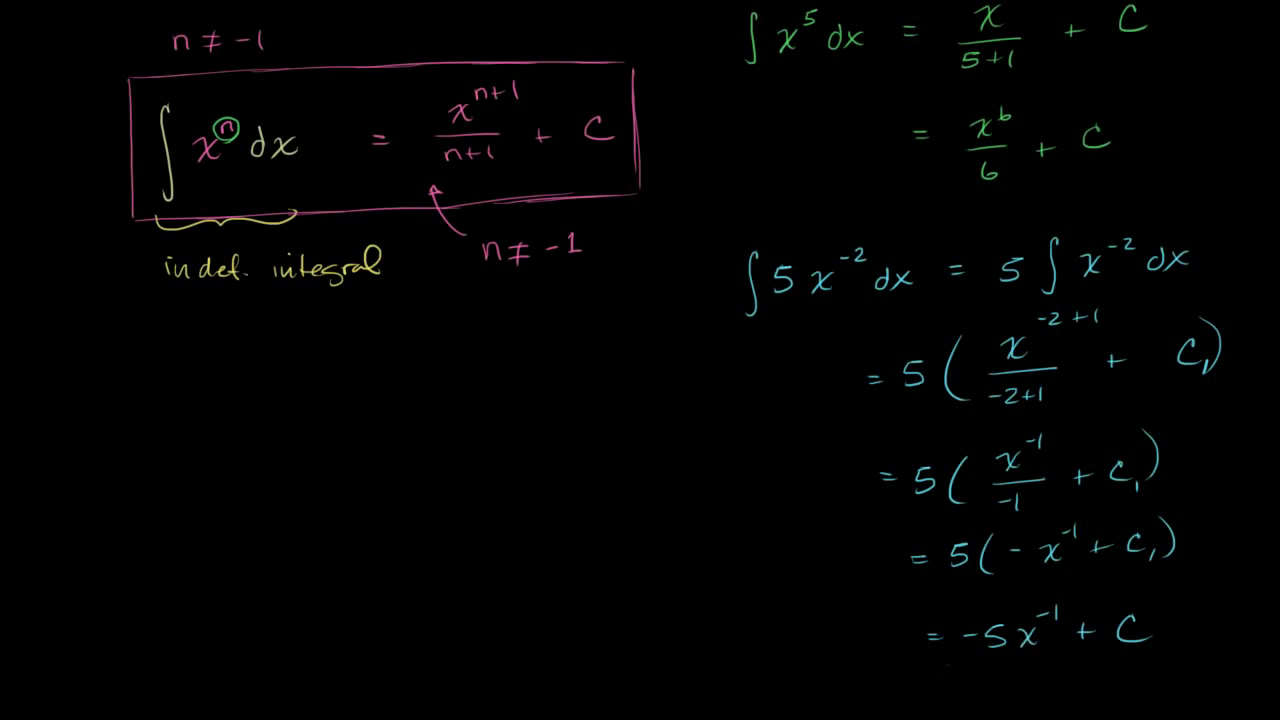 n ≠ -1
∫ xⁿ dx = xⁿ⁺¹/n+1 + C
n ≠ -1
indef. integral
∫ x⁵ dx = x/5+1 + C
= x⁶/6 + C
∫ 5 x⁻² dx = 5 ∫ x⁻² dx
= 5 ( x⁻²⁺¹/-2+1 + C₁)
= 5 ( x⁻¹/-1 + C₁)
= 5 (- x⁻¹ + C₁)
= -5x⁻¹ + C